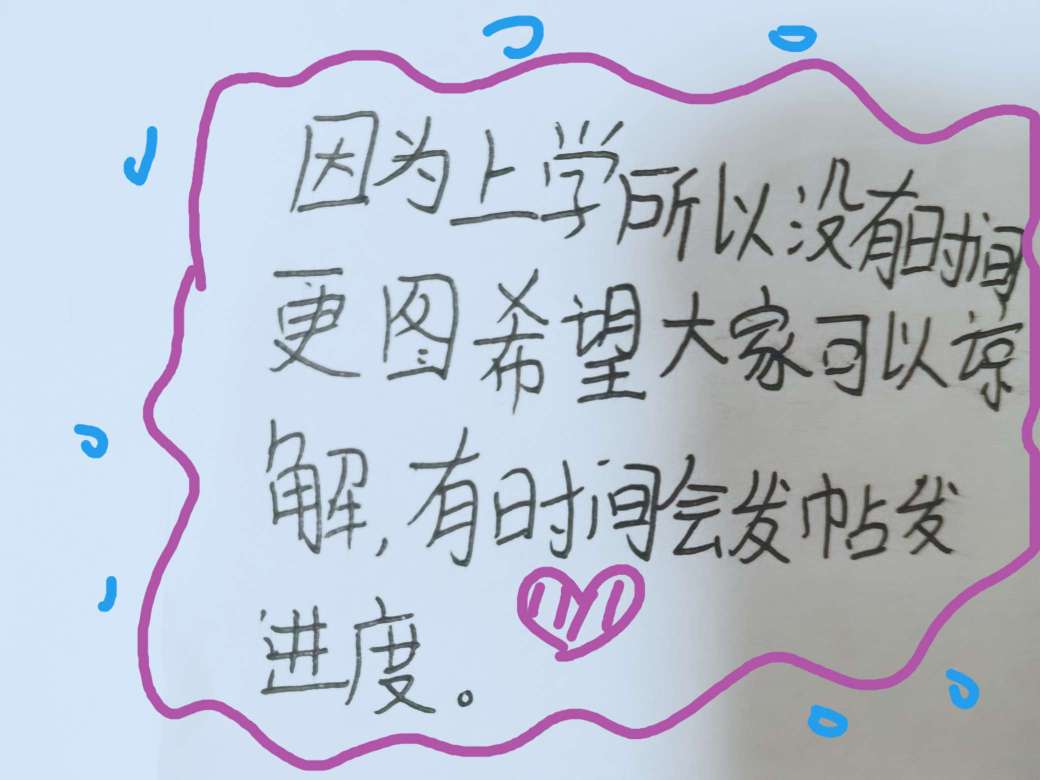 因为上学所以没有时间
更图希望大家可以谅
解,有时间会发帖发
进度。